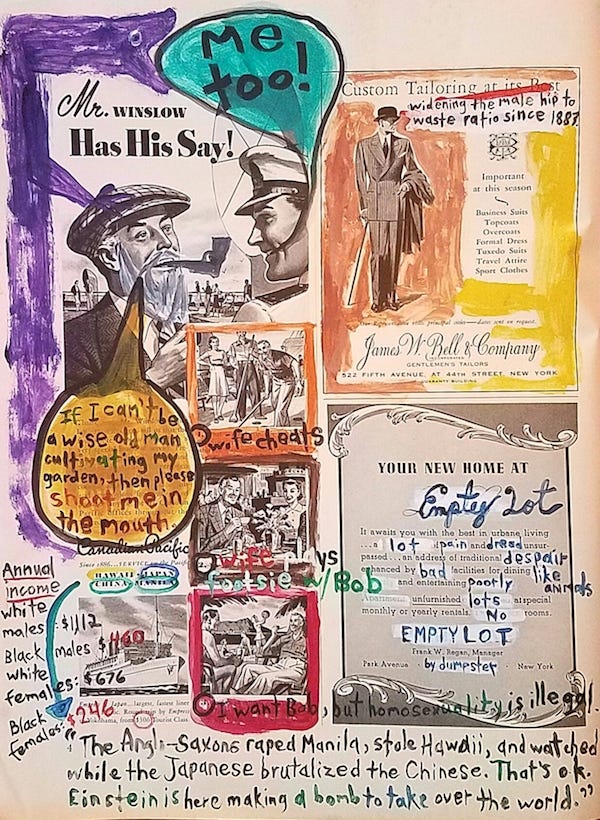 Me
too!
Mr. WINSLOW
Has His Say!
If I can't be
a wise old man
cultivating my
garden, then please
shoot me in
the mouth
Canadian Pacific
HAWAII
Custom Tailoring at its Best
widening the male hip to
waste ratio since 1887
Important
at this season
Business Suits
Topcoats
Overcoats
Formal Dress
Tuxedo Suits
Travel Attire
Sport Clothes
James W. Bell & Company
INCORPORATED
GENTLEMEN'S TAILORS
522 FIFTH AVENUE, AT 44TH STREET, NEW YORK
wife cheats
wife
footsie w/ Bob
I want Bob, but homosexuality is illegal.
YOUR NEW HOME AT
Empty Lot
It awaits you with the best in urbane living
...a lot pain and dread unsur-
passed...an address of traditional despair
enhanced by bad facilities for dining like
and entertaining poorly animals
unfurnished lots at special
monthly or yearly rentals. No rooms.
EMPTY LOT
Frank W. Regan, Manager
Park Avenue by dumpster New York
Annual
income
white
males: $1112
Black males $460
white
females: $676
Black
females: $246
"The Anglo-Saxons raped Manila, stole Hawaii, and watched
while the Japanese brutalized the Chinese. That's o.k.
Einstein is here making a bomb to take over the world."